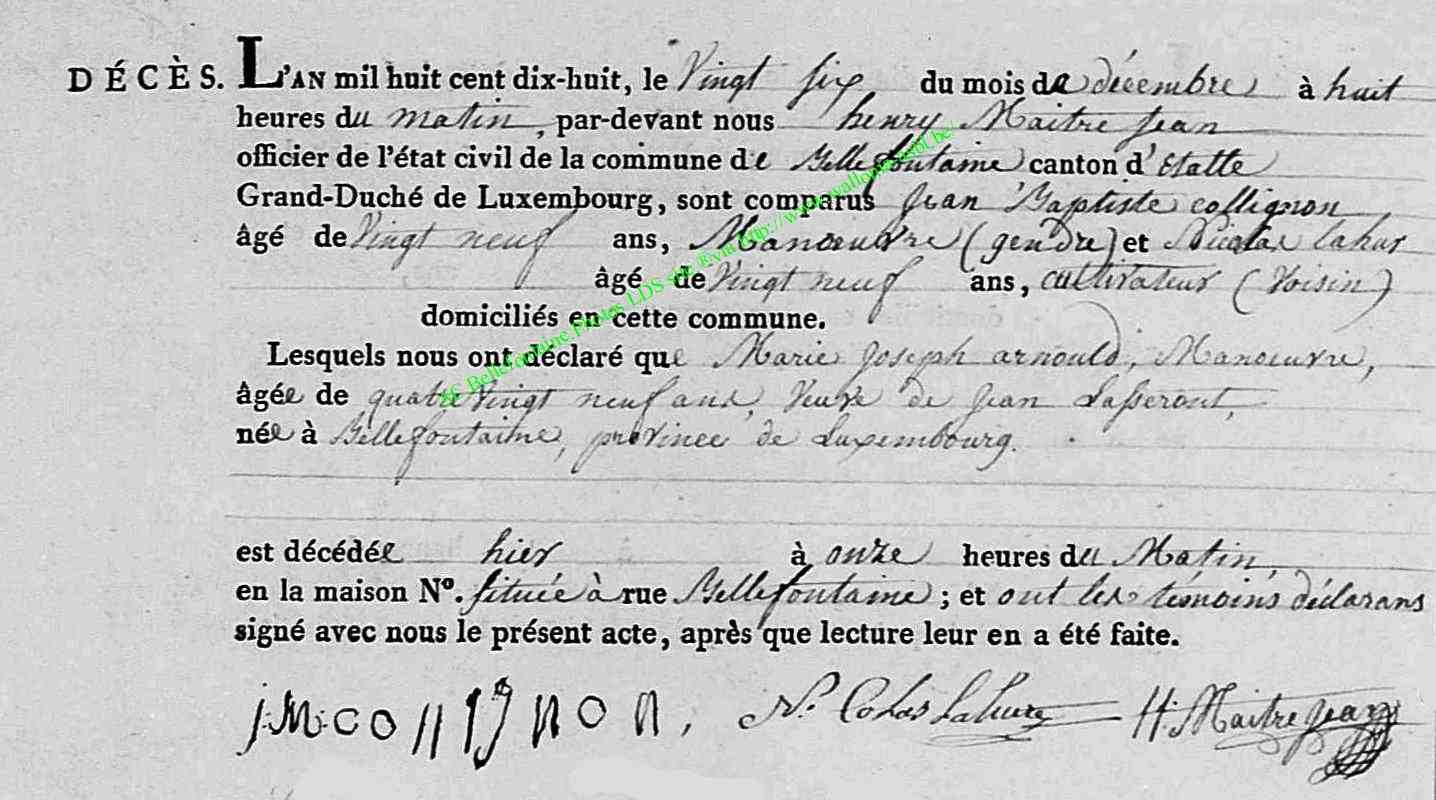 DÉCÈS. L'AN mil huit cent dix-huit, le Vingt six du mois de décembre à huit
heures du matin, par-devant nous henry Maitre jean
officier de l'état civil de la commune de Bellefontaine canton d'Etalle
Grand-Duché de Luxembourg, sont comparus Jean Baptiste collignon
âgé de Vingt neuf ans, Manœuvre (gendre) et Nicolas lahur
âgé de Vingt neuf ans, cultivateur (Voisin)
domiciliés en cette commune.
Lesquels nous ont déclaré que Marie Joseph arnould, Manœuvre,
âgée de quatre Vingt neuf ans, Veuve de Jean Lasseront,
née à Bellefontaine, province de Luxembourg.
est décédée hier à onze heures du Matin,
en la maison N°. située à rue Bellefontaine; et ont les témoins déclarans
signé avec nous le présent acte, après que lecture leur en a été faite.
collignon, N. Colas Lahure H. Maitrejean